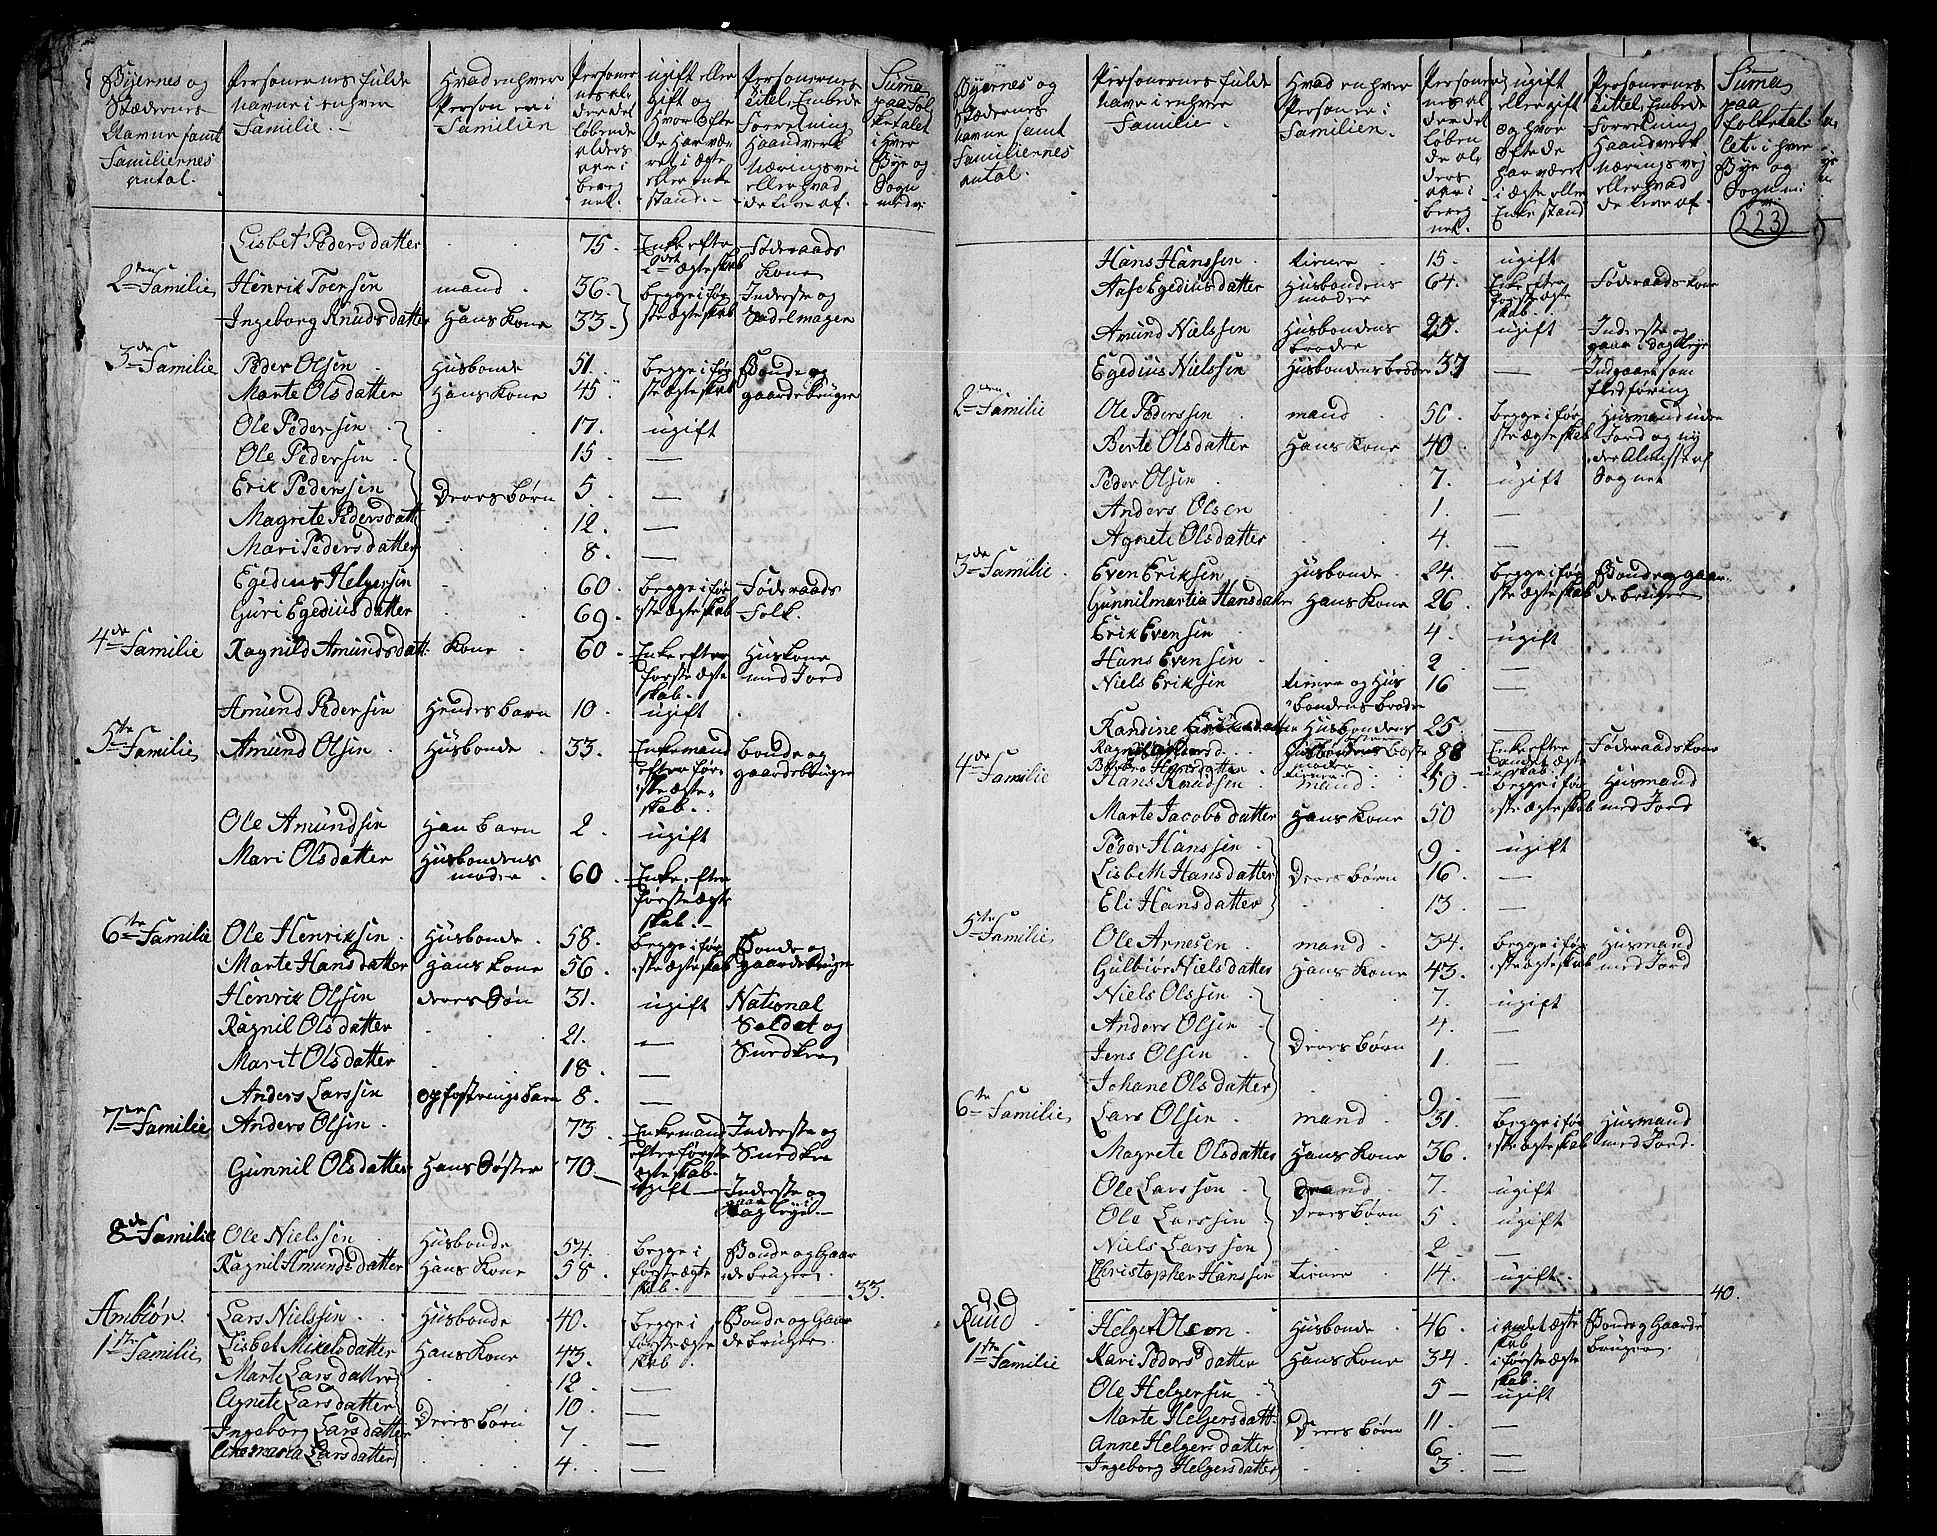 Byernes og Stædernes Navne samt Familiernes Antal.
Personernes fulde navne i enhver Familie.
Hvad enhver Person er i Familien
ugift eller gift og hvor ofte de har været i ægte eller enkestand.
Personernes Titel, Embede Forretning Haandverk Næringsvei eller hvad de leve af.
Lisbet Pedersdatter 75. Enke efter 2det ægteskab Føderaads Kone
2den Familie Henrik Toersen mand 36. begge i første ægteskab Inderste og Sadelmager
Ingeborg Knudsdatter Hans Kone 33.
3de Familie Peder Olsen Husbonde 51. begge i første ægteskab Bonde og gaardebruger
Marte Olsdatter Hans Kone 45
Ole Pedersen 17. ugift
Ole Pedersen 15 —
Erik Pederssen Deres børn 5 —
Magrete Pedersdatt 12. —
Mari Pedersdatter 8. —
Egedius Helgersen 60. begge i første ægteskab Føderaads Folk.
Guri Egediusdatter 69.
4de Familie Ragnild Amundsdatt. Kone 60 Enke efter første ægteskab. Huskone med Jord
Amund Pedersen Hendes barn 10 ugift
5te Familie Amund Olsen Husbonde 33. Enkemand efter første ægteskab. bonde og gaardebruger
Ole Amundsen Hans barn 2. ugift
Mari Olsdatter Husbondens moder 60 Enke efter første ægteskab.
6te Familie Ole Henriksen Husbonde 58. begge i første ægteskab Bonde og gaardebruger
Marte Hansdatter Hans Kone 56
Henrik Olsen deres Søn 31. ugift National Soldat og Snedker
Ragnil Olsdatter 21. —
Marit Olsdatter 18. —
Anders Larssen opfostringsbarn 8. —
7de Familie Anders Olsen 73. Enkemand efter første ægteskab. Inderste og Snedker
Gunnil Olsdatter Hans Søster 70 ugift — Inderste og gaar i Dagleye.
8de Familie Ole Nielssen Husbonde 54. begge i første ægteskab. Bonde og Gaardebruger
Ragnil Amundsdatter Hans Kone 58
33.
Ambiør Lars Nielssen Husbonde 40. begge i første ægteskab. Bonde og Gaardebruger
1te Familie Lisbet Mikelsdatter Hans Kone 43.
Marte Larsdatter 12. —
Agnete Larsdatter Deres børn 10. —
Ingeborg Larsdatter 7. —
Anemaria Larsdatter 4. —
Byernes og Stædernes navne samt Familiernes antal.
Personernes fulde navne i enhver Familie.
Hvad enhver Person er i Familien.
ugift eller gift og hvor ofte de har været i ægte eller Enkestand
Personernes Tittel, Embede Forretning Haandverk Næringsvej eller hvad de leve af.
Suma paa Folketallet i hver Bye og Sogn
223
Hans Hanssen tiener 15. ugift
Aase Egediusdatter Husbondens moder 64. Enke efter første ægteskab. Føderaadskone
Amund Nielssen Husbondens broder 25. ugift Inderste og gaar i dagleye
Egedius Nielssen Husbondens broder 37 —
2den Familie Ole Pederssen mand 50. begge i første ægteskab Husmand uden Jord og nyder Almisse af Sognet
Berte Olsdatter Hans Kone 40
Peder Olsen 7. ugift
Anders Olsen 1. —
Agnete Olsdatter 4. —
3de Familie Even Eriksen Husbonde 24. begge i første ægteskab Bonde og gaardebruger
Gunnilmartia Hansdatter Hans Kone 26
Erik Evensen 4. ugift
Hans Evensen 2 —
Niels Eriksen tiener og Husbondens broder 16 —
Randine Eriksdatter Husbondens 25. —
88 Enke efter andet ægteskab. Føderaadskone
4de Familie Hans Knudsen mand 50. begge i første ægteskab Husmand med Jord
Marte Jacobsdatter Hans Kone 50
Peder Hanssen 9. ugift
Lisbeth Hansdatter Deres børn 16. —
Eli Hansdatter 13. —
5te Familie Ole Arnesen mand 34. begge i første ægteskab Husmand med Jord
Gulbiør Nielsdatter Hans Kone 43.
Niels Olssen 7. ugift
Anders Olsen 4. —
Jens Olsen Deres børn 1. —
Johane Olsdatter 9. —
6te Familie Lars Olsen mand 31. begge i første ægteskab Husmand med Jord.
Magrete Olsdatter Hans Kone 36.
Ole Larssen 7. ugift
Ole Larssen Deres børn 5. ugift
Niels Larssen 2 —
Christopher Hanssen tiener 14. ugift.
40.
Ruud Helger Olson Husbonde 46. i andet ægteskab Bonde og Gaardebruger
1te Familie Kari Pedersdatter Hans Kone 34. i første ægteskab.
Ole Helgersen 5 — ugift
Marte Helgersdatt. Deres børn 11. —
Anne Helgersdatter 6. —
Ingeborg Helgersdatter 3. —